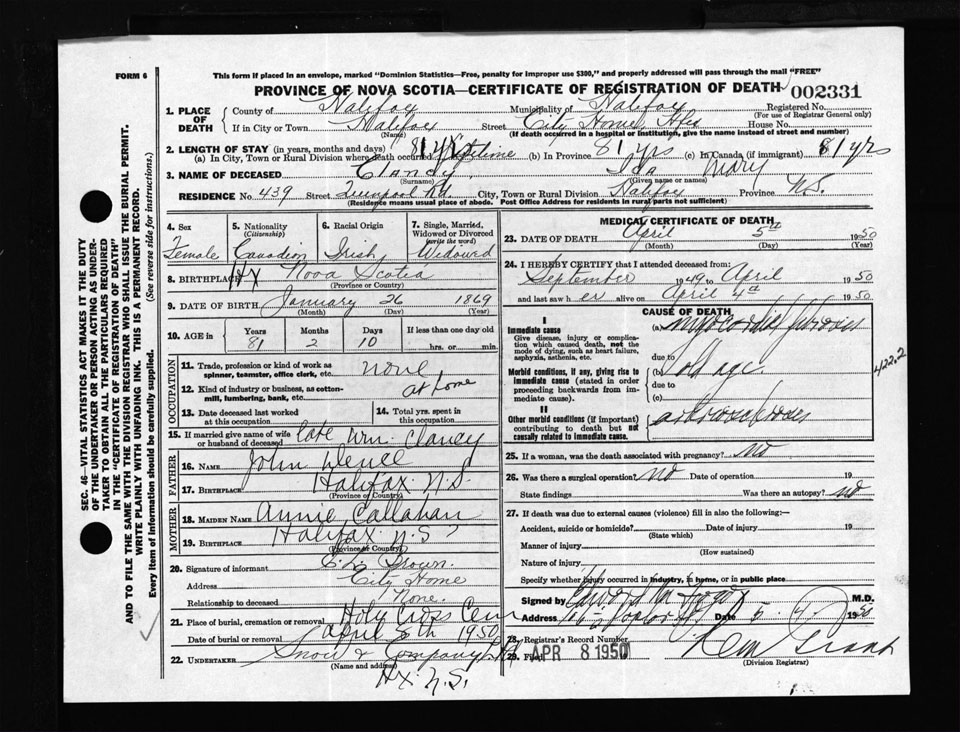 FORM 6
This form if placed in an envelope, marked "Dominion Statistics—Free, penalty for improper use $300," and properly addressed will pass through the mail "FREE"
PROVINCE OF NOVA SCOTIA—CERTIFICATE OF REGISTRATION OF DEATH 002331
1. PLACE OF DEATH County of Halifax Municipality of Halifax Registered No.
(For use of Registrar General only)
If in City or Town Halifax Street City Home, Hfx House No.
(Name) (If death occurred in a hospital or institution, give the name instead of street and number)
2. LENGTH OF STAY (in years, months and days)
(a) In City, Town or Rural Division where death occurred 81 yrs lifetime (b) In Province 81 yrs (c) In Canada (if immigrant) 81 yrs
3. NAME OF DECEASED Clancy Ida Mary
(Surname) (Given name or names)
RESIDENCE No. 439 Street Quinpool Rd. City, Town or Rural Division Halifax Province N.S.
(Residence means usual place of abode. Post Office Address for residents in rural parts not sufficient)
4. Sex 5. Nationality (Citizenship) 6. Racial Origin 7. Single, Married, Widowed or Divorced (write the word)
Female Canadian Irish Widowed
8. BIRTHPLACE Hx Nova Scotia
(Province or Country)
9. DATE OF BIRTH January 26 1869
(Month) (Day) (Year)
10. AGE in Years Months Days If less than one day old
81 2 10 hrs. or min.
OCCUPATION
11. Trade, profession or kind of work as spinner, teamster, office clerk, etc. none
12. Kind of industry or business, as cotton-mill, lumbering, bank, etc. at home
13. Date deceased last worked at this occupation 14. Total yrs. spent in this occupation
15. If married give name of wife or husband of deceased late Wm. Clancy
FATHER
16. Name John
17. Birthplace Halifax N.S.
(Province or Country)
MOTHER
18. Maiden Name Annie Callahan
19. Birthplace Halifax N.S.
(Province or Country)
20. Signature of informant
Address City Home
Relationship to deceased None.
21. Place of burial, cremation or removal Holy Cross Cem
Date of burial or removal April 1950
22. UNDERTAKER Snow & Company Ltd
(Name and address)
Hx. N.S.
MEDICAL CERTIFICATE OF DEATH
23. DATE OF DEATH April 5th 1950
(Month) (Day) (Year)
24. I HEREBY CERTIFY that I attended deceased from:
September 1949 to April 1950
and last saw her alive on April 4th 1950
CAUSE OF DEATH
I
Immediate cause
Give disease, injury or complication which caused death, not the mode of dying, such as heart failure, asphyxia, asthenia, etc.
(a) myocardial fibrosis
due to
Morbid conditions, if any, giving rise to immediate cause (stated in order proceeding backwards from immediate cause).
(b) old age
due to
(c)
422.2
II
Other morbid conditions (if important) contributing to death but not causally related to immediate cause.
25. If a woman, was the death associated with pregnancy? No
26. Was there a surgical operation? No Date of operation 19
State findings Was there an autopsy? No
27. If death was due to external causes (violence) fill in also the following:—
Accident, suicide or homicide? Date of injury 19
(State which)
Manner of injury
(How sustained)
Nature of injury
Specify whether injury occurred in industry, in home, or in public place
Signed by M.D.
Address Date 5. 4. 1950
28. Registrar's Record Number
29. Filed APR 8 1950
(Division Registrar)
SEC. 46—VITAL STATISTICS ACT MAKES IT THE DUTY OF THE UNDERTAKER OR PERSON ACTING AS UNDERTAKER TO OBTAIN ALL THE PARTICULARS REQUIRED IN THE "CERTIFICATE OF REGISTRATION OF DEATH" AND TO FILE THE SAME WITH THE DIVISION REGISTRAR WHO SHALL ISSUE THE BURIAL PERMIT.
WRITE PLAINLY WITH UNFADING INK. THIS IS A PERMANENT RECORD.
Every item of Information should be carefully supplied. (See reverse side for instructions.)